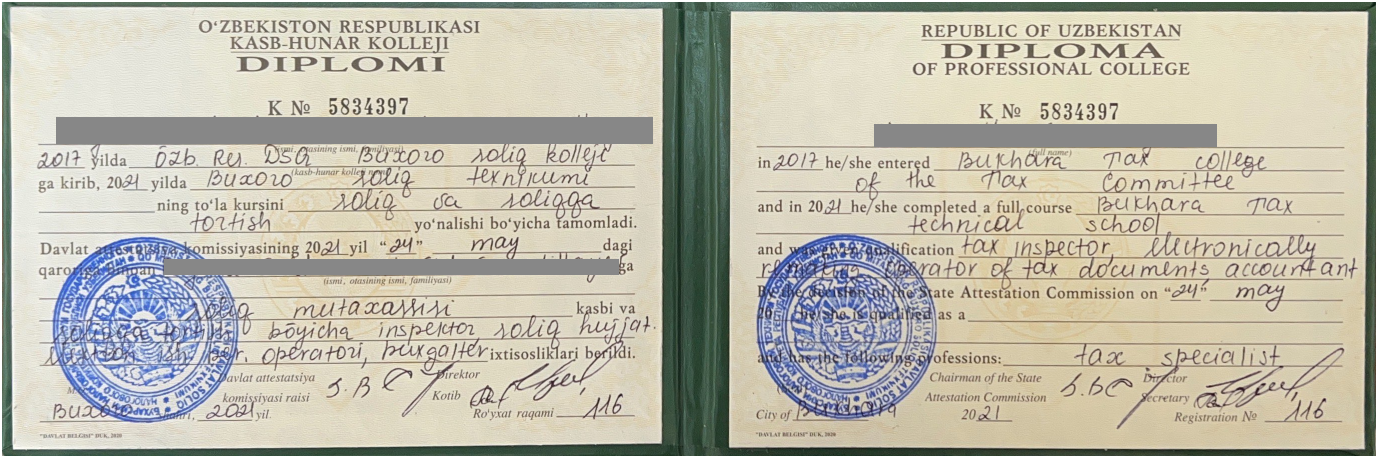 O‘ZBEKISTON RESPUBLIKASI
KASB-HUNAR KOLLEJI
DIPLOMI
K № 5834397
(ismi, otasining ismi, familiyasi)
2017 yilda Õzb. Res. DSQ Buxoro soliq kolleji
(kasb-hunar kolleji nomi)
ga kirib, 2021 yilda Buxoro soliq texnikumi
ning to‘la kursini soliq va soliqqa
tortish yo‘nalishi bo‘yicha tamomladi.
Davlat komissiyasining 2021 yil “24” may dagi
qaroriga ga
(ismi, otasining ismi, familiyasi)
soliq mutaxassisi kasbi va
soliqqa tortish bõyicha inspektor soliq hujjat.
operatori, buxgalter ixtisosliklari berildi.
Davlat attestatsiya Direktor
komissiyasi raisi Kotib
Buxoro 2021 yil. Ro‘yxat raqami 116
"DAVLAT BELGISI" DUK, 2020
REPUBLIC OF UZBEKISTAN
DIPLOMA
OF PROFESSIONAL COLLEGE
K № 5834397
(full name)
in 2017 he/she entered Bukhara Tax college
of the Tax Committee
and in 2021 he/she completed a full course Bukhara Tax
technical school
and was qualification tax inspector, electronically
operator of tax documents accountant
By the decision of the State Attestation Commission on “24” may
20 he/she is qualified as a
and has the following professions: tax specialist
Chairman of the State Director
Attestation Commission Secretary
City of 2021 Registration № 116
"DAVLAT BELGISI" DUK, 2020